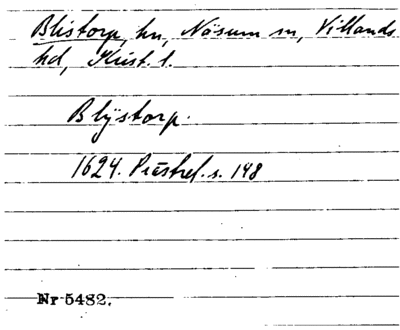 Blistorp, hn, Näsum sn, Villands
hd, Krist. l.
Blÿstorp.
1624. Präsrel. s. 148
Nr 5482.